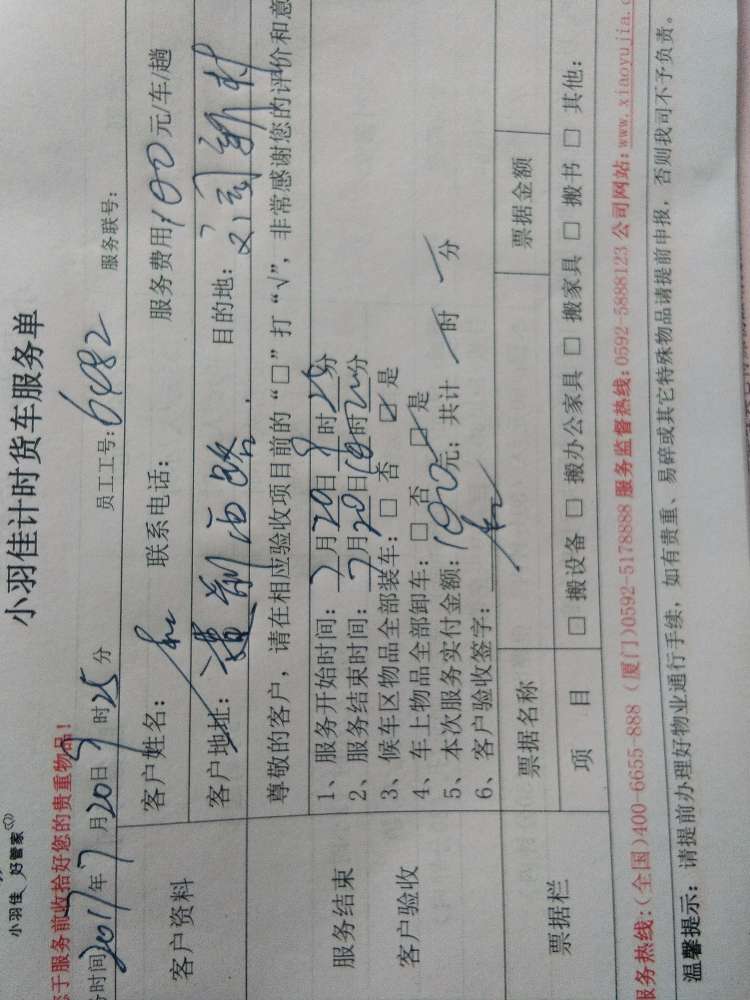 小羽佳 好管家
小羽佳计时货车服务单
于服务前收拾好您的贵重物品!
时间 2017年7月20日9时25分 员工工号:6482 服务联号:
客户资料
客户姓名: 联系电话: 服务费用100元/车/趟
客户地址: 目的地:
尊敬的客户,请在相应验收项目前的“□”打“√”,非常感谢您的评价和意
服务结束
客户验收
1、服务开始时间:7月20日9时25分
2、服务结束时间:7月20日10时20分
3、候车区物品全部装车:□ 否 ☑ 是
4、车上物品全部卸车:□ 否 ☑ 是
5、本次服务实付金额:100元;共计 时 分
6、客户验收签字:
票据栏
票据名称 票据金额
项 目 □ 搬设备 □ 搬办公家具 □ 搬家具 □ 搬书 □ 其他:
服务热线:(全国)400-6655-888 (厦门)0592-5178888 服务监督热线:0592-5888123 公司网站:www.xiaoyujia.c
温馨提示:请提前办理好物业通行手续,如有贵重、易碎或其它特殊物品请提前申报,否则我司不予负责。